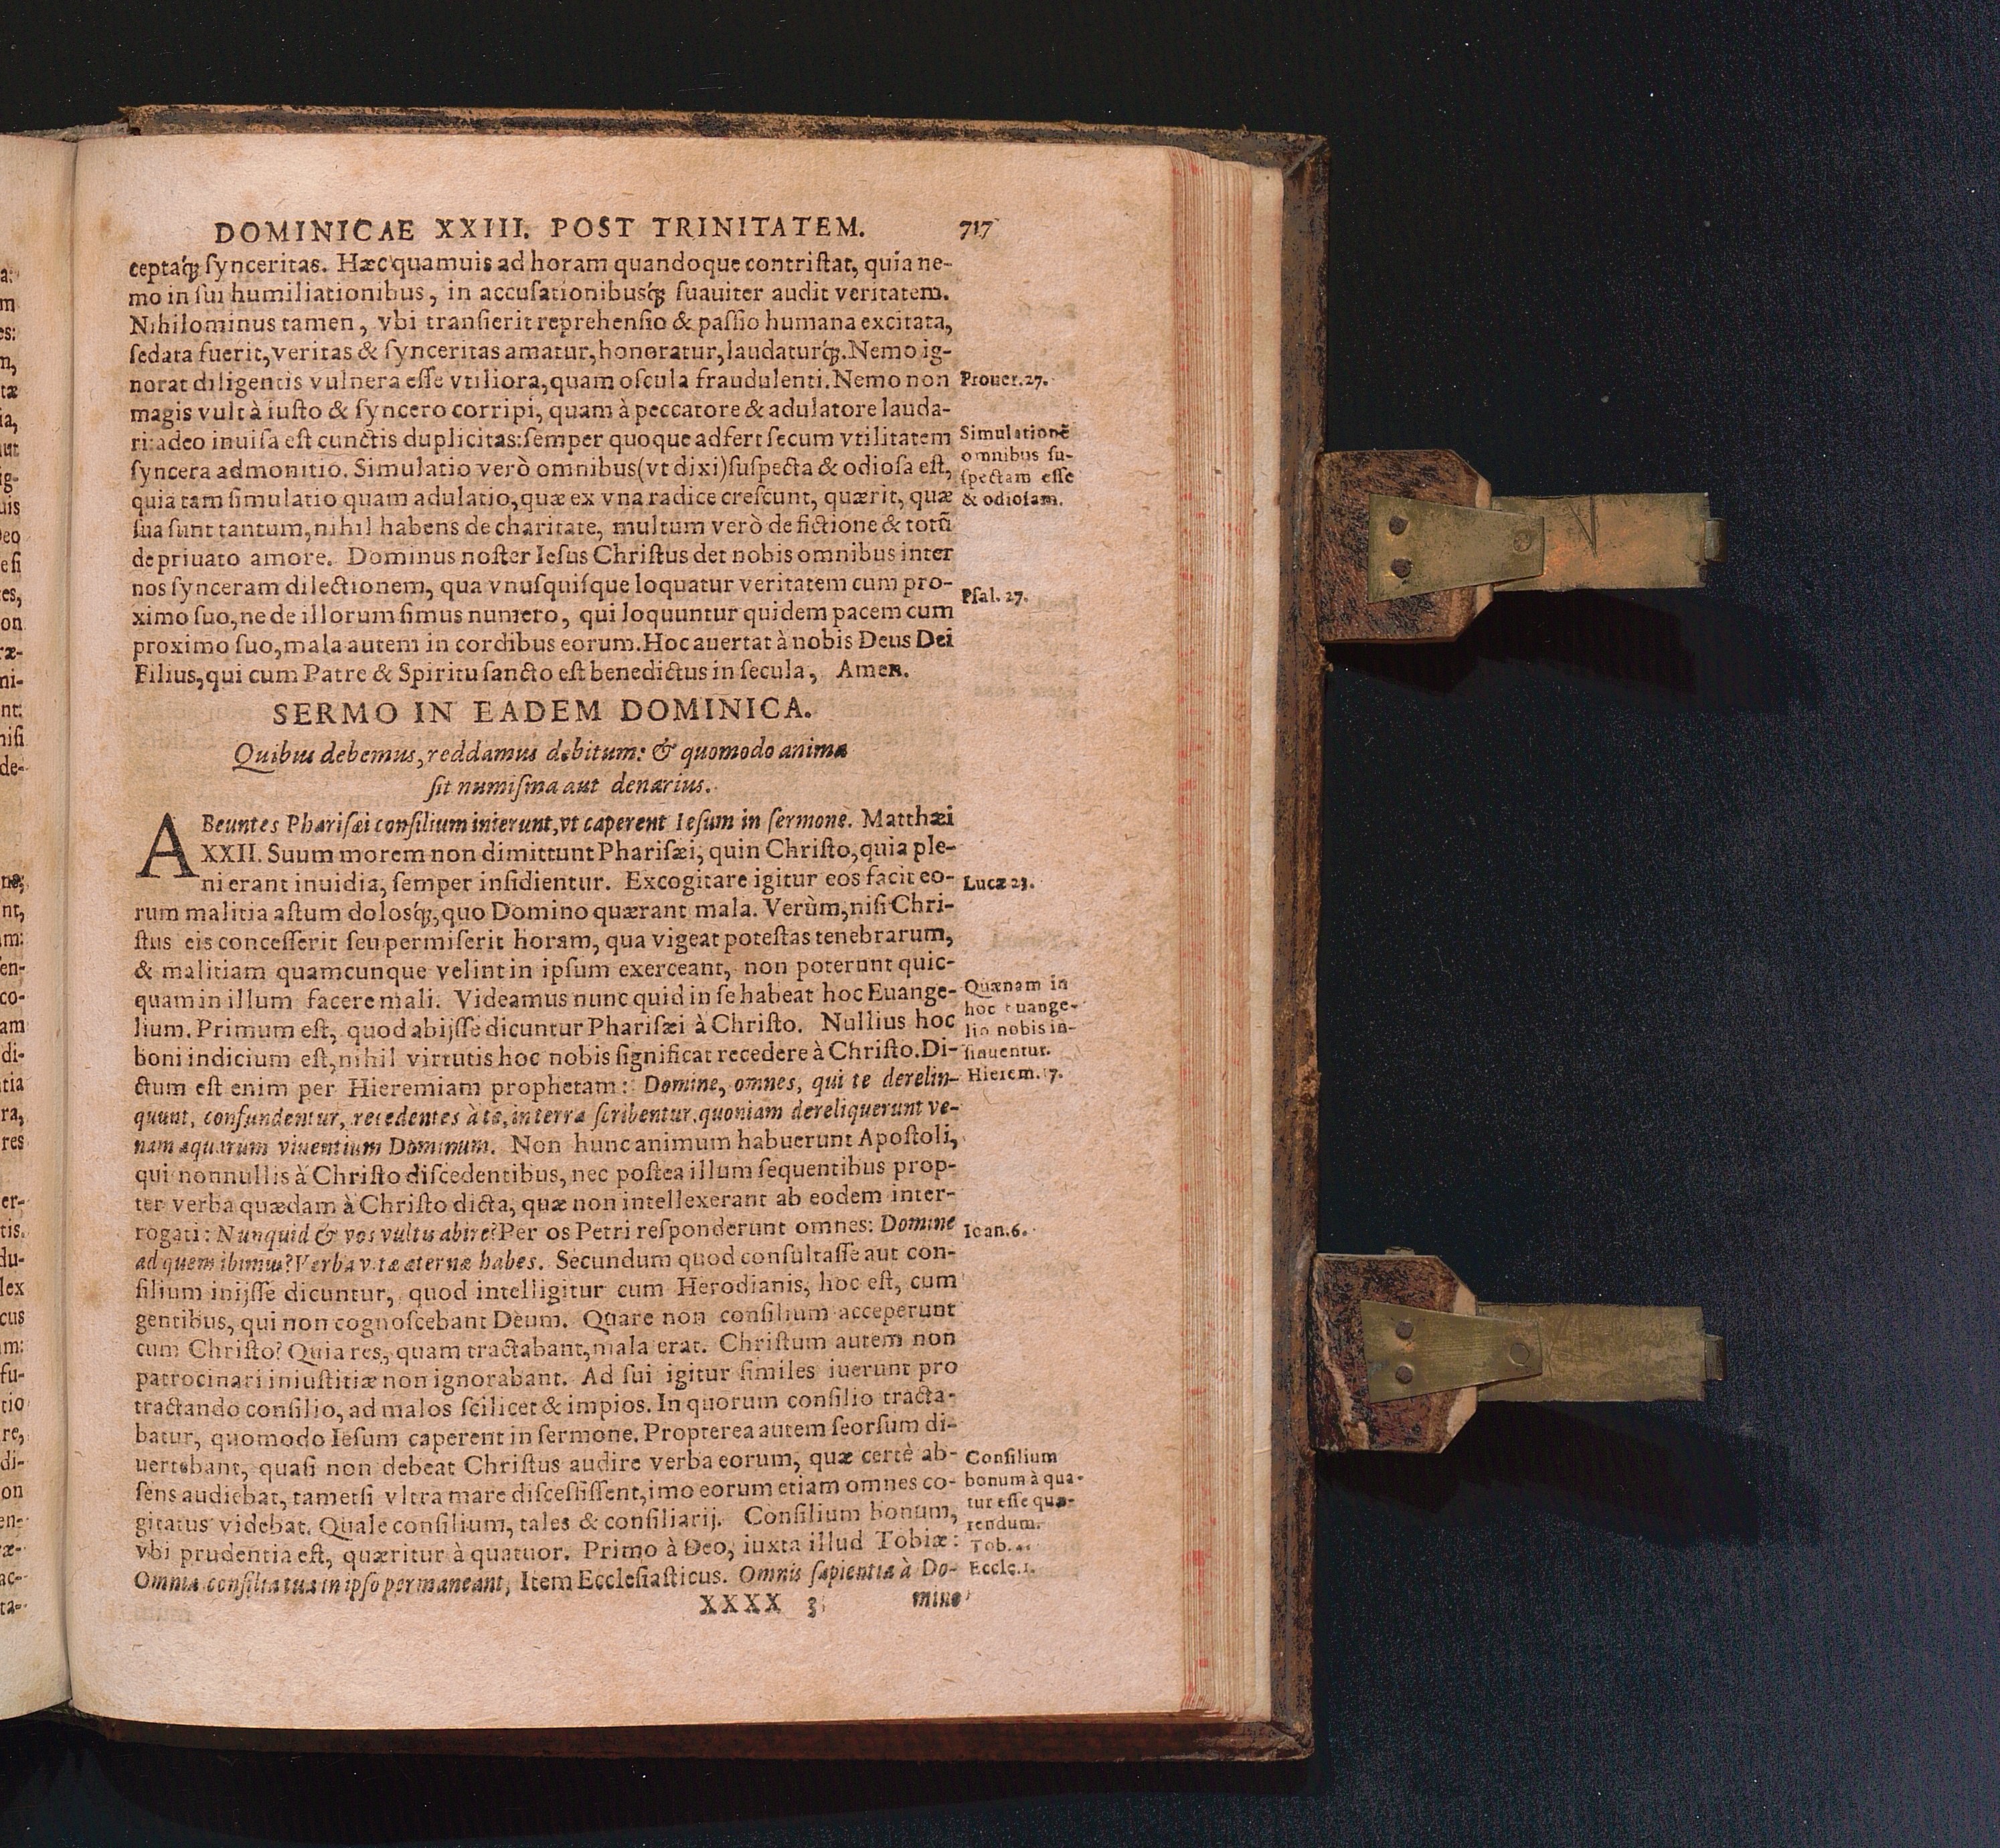 DOMINICAE XXIII. POST TRINITATEM. 717
ceptaq́; ſynceritas. Hæc quamuis ad horam quandoque contriſtat, quia ne-
mo in ſui humiliationibus, in accuſationibusq́; ſuauiter audit veritatem.
Nihilominus tamen, vbi tranſierit reprehenſio & paſſio humana excitata,
ſedata fuerit, veritas & ſynceritas amatur, honoratur, laudaturq́;. Nemo ig-
norat diligentis vulnera eſſe vtiliora, quam oſcula fraudulenti. Nemo non
Prouer. 27.
magis vult à iuſto & ſyncero corripi, quam à peccatore & adulatore lauda-
ri: adeo inuiſa eſt cunctis duplicitas: ſemper quoque adfert ſecum vtilitatem
ſyncera admonitio. Simulatio verò omnibus (vt dixi) ſuſpecta & odioſa eſt,
quia tam ſimulatio quam adulatio, quæ ex vna radice creſcunt, quærit, quæ
Simulationẽ
omnibus ſu-
ſpectam eſſe
& odioſam.
ſua ſunt tantum, nihil habens de charitate, multum verò de fictione & totũ
de priuato amore. Dominus noſter Ieſus Chriſtus det nobis omnibus inter
nos ſynceram dilectionem, qua vnuſquiſque loquatur veritatem cum pro-
Pſal. 27.
ximo ſuo, ne de illorum ſimus numero, qui loquuntur quidem pacem cum
proximo ſuo, mala autem in cordibus eorum. Hoc auertat à nobis Deus Dei
Filius, qui cum Patre & Spiritu ſancto eſt benedictus in ſecula, Amen.
SERMO IN EADEM DOMINICA.
Quibus debemus, reddamus debitum: & quomodo anima
ſit numiſma aut denarius.
ABeuntes Phariſæi conſilium inierunt, vt caperent Ieſum in ſermone. Matthæi
XXII. Suum morem non dimittunt Phariſæi, quin Chriſto, quia ple-
ni erant inuidia, ſemper inſidientur. Excogitare igitur eos facit eo-
Lucæ 23.
rum malitia aſtum dolosq́;, quo Domino quærant mala. Verùm, niſi Chri-
ſtus eis conceſſerit ſeu permiſerit horam, qua vigeat poteſtas tenebrarum,
& malitiam quamcunque velint in ipſum exerceant, non poterunt quic-
quam in illum facere mali. Videamus nunc quid in ſe habeat hoc Euange-
Quænam in
hoc euange-
lio nobis in-
ſinuentur.
lium. Primum eſt, quod abijſſe dicuntur Phariſæi à Chriſto. Nullius hoc
boni indicium eſt, nihil virtutis hoc nobis ſignificat recedere à Chriſto. Di-
ctum eſt enim per Hieremiam prophetam: Domine, omnes, qui te derelin-
Hierem. 17.
quunt, confundentur, recedentes à te, in terra ſcribentur, quoniam dereliquerunt ve-
nam aquarum viuentium Dominum. Non hunc animum habuerunt Apoſtoli,
qui nonnullis à Chriſto diſcedentibus, nec poſtea illum ſequentibus prop-
ter verba quædam à Chriſto dicta, quæ non intellexerant ab eodem inter-
rogati: Nunquid & vos vultis abire? Per os Petri reſponderunt omnes: Domine
Ioan. 6.
ad quem ibimus? Verba vitæ æternæ habes. Secundum quod conſultaſſe aut con-
ſilium inijſſe dicuntur, quod intelligitur cum Herodianis, hoc eſt, cum
gentibus, qui non cognoſcebant Deum. Quare non conſilium acceperunt
cum Chriſto? Quia res, quam tractabant, mala erat. Chriſtum autem non
patrocinari iniuſtitiæ non ignorabant. Ad ſui igitur ſimiles iuerunt pro
tractando conſilio, ad malos ſcilicet & impios. In quorum conſilio tracta-
batur, quomodo Ieſum caperent in ſermone. Propterea autem ſeorſum di-
uertebant, quaſi non debeat Chriſtus audire verba eorum, quæ certè ab-
ſens audiebat, tametſi vltra mare diſceſſiſſent, imo eorum etiam omnes co-
gitatus videbat. Quale conſilium, tales & conſiliarij. Conſilium bonum,
Conſilium
bonum à qua-
tur eſſe quæ-
rendum.
vbi prudentia eſt, quæritur à quatuor. Primo à Deo, iuxta illud Tobiæ:
Tob.
Omnia conſilia tua in ipſo permaneant, Item Eccleſiaſticus. Omnis ſapientia à Do-
Eccle. 1.
XXXX 3 mino